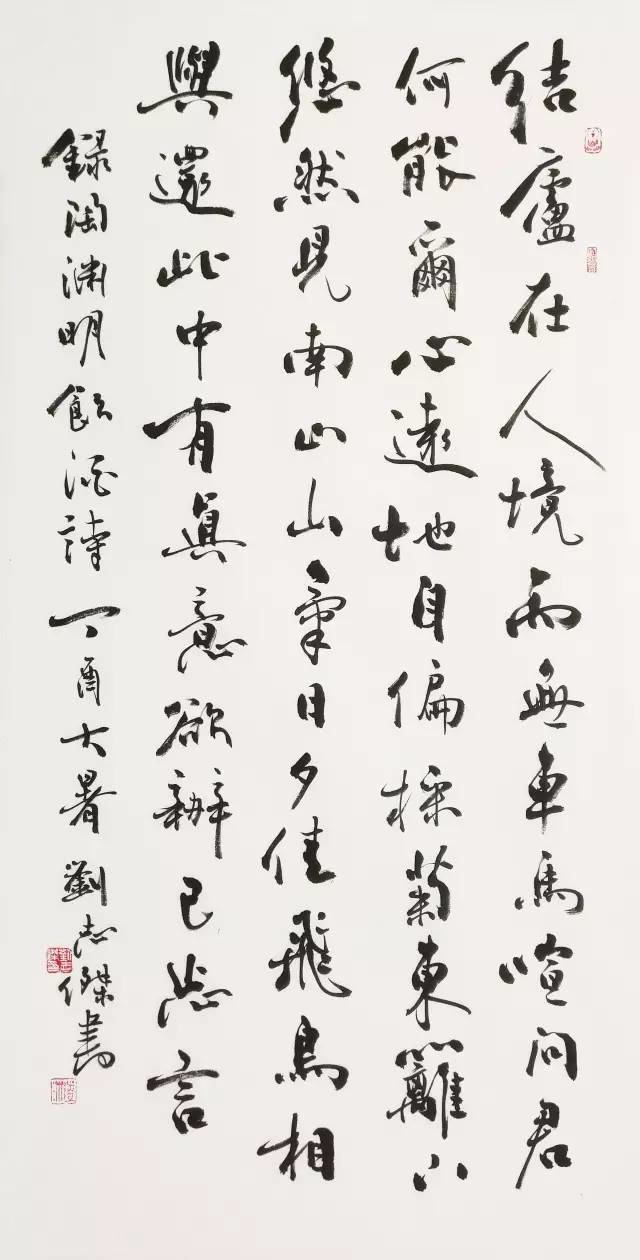 結廬在人境而無車馬喧問君
何能爾心遠地自偏採菊東籬下
悠然見南山山氣日夕佳飛鳥相
與還此中有真意欲辨已忘言
錄陶淵明飲酒詩丁酉大暑劉志傑書